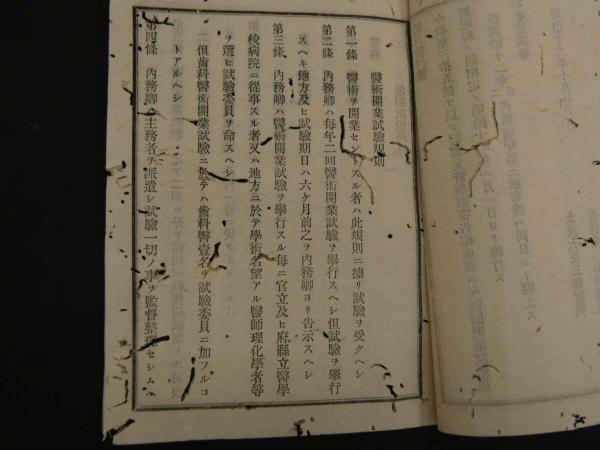 醫術開業試驗規則
第一條 醫術ヲ開業セントスル者ハ此規則ニ據リ試驗ヲ受クヘシ
第二條 內務卿ハ每年二回醫術開業試驗ヲ擧行スヘシ但試驗ヲ擧行
スヘキ地方及ヒ試驗期日ハ六ケ月前之ヲ內務卿ヨリ告示スヘシ
第三條 內務卿ハ醫術開業試驗ヲ擧行スル每ニ官立及ヒ府縣立醫學
校病院ニ從事スル者又ハ地方ニ於テ學術名望アル醫師理化學者等
ヲ選ヒ試驗委員ヲ命スヘシ
但齒科醫術開業試驗ニ於テハ齒科醫壹名ヲ試驗委員ニ加フルコ
トアルヘシ
第四條 內務卿ハ主務者ヲ派遣シ試驗一切ノ事ヲ監督整理セシムヘ